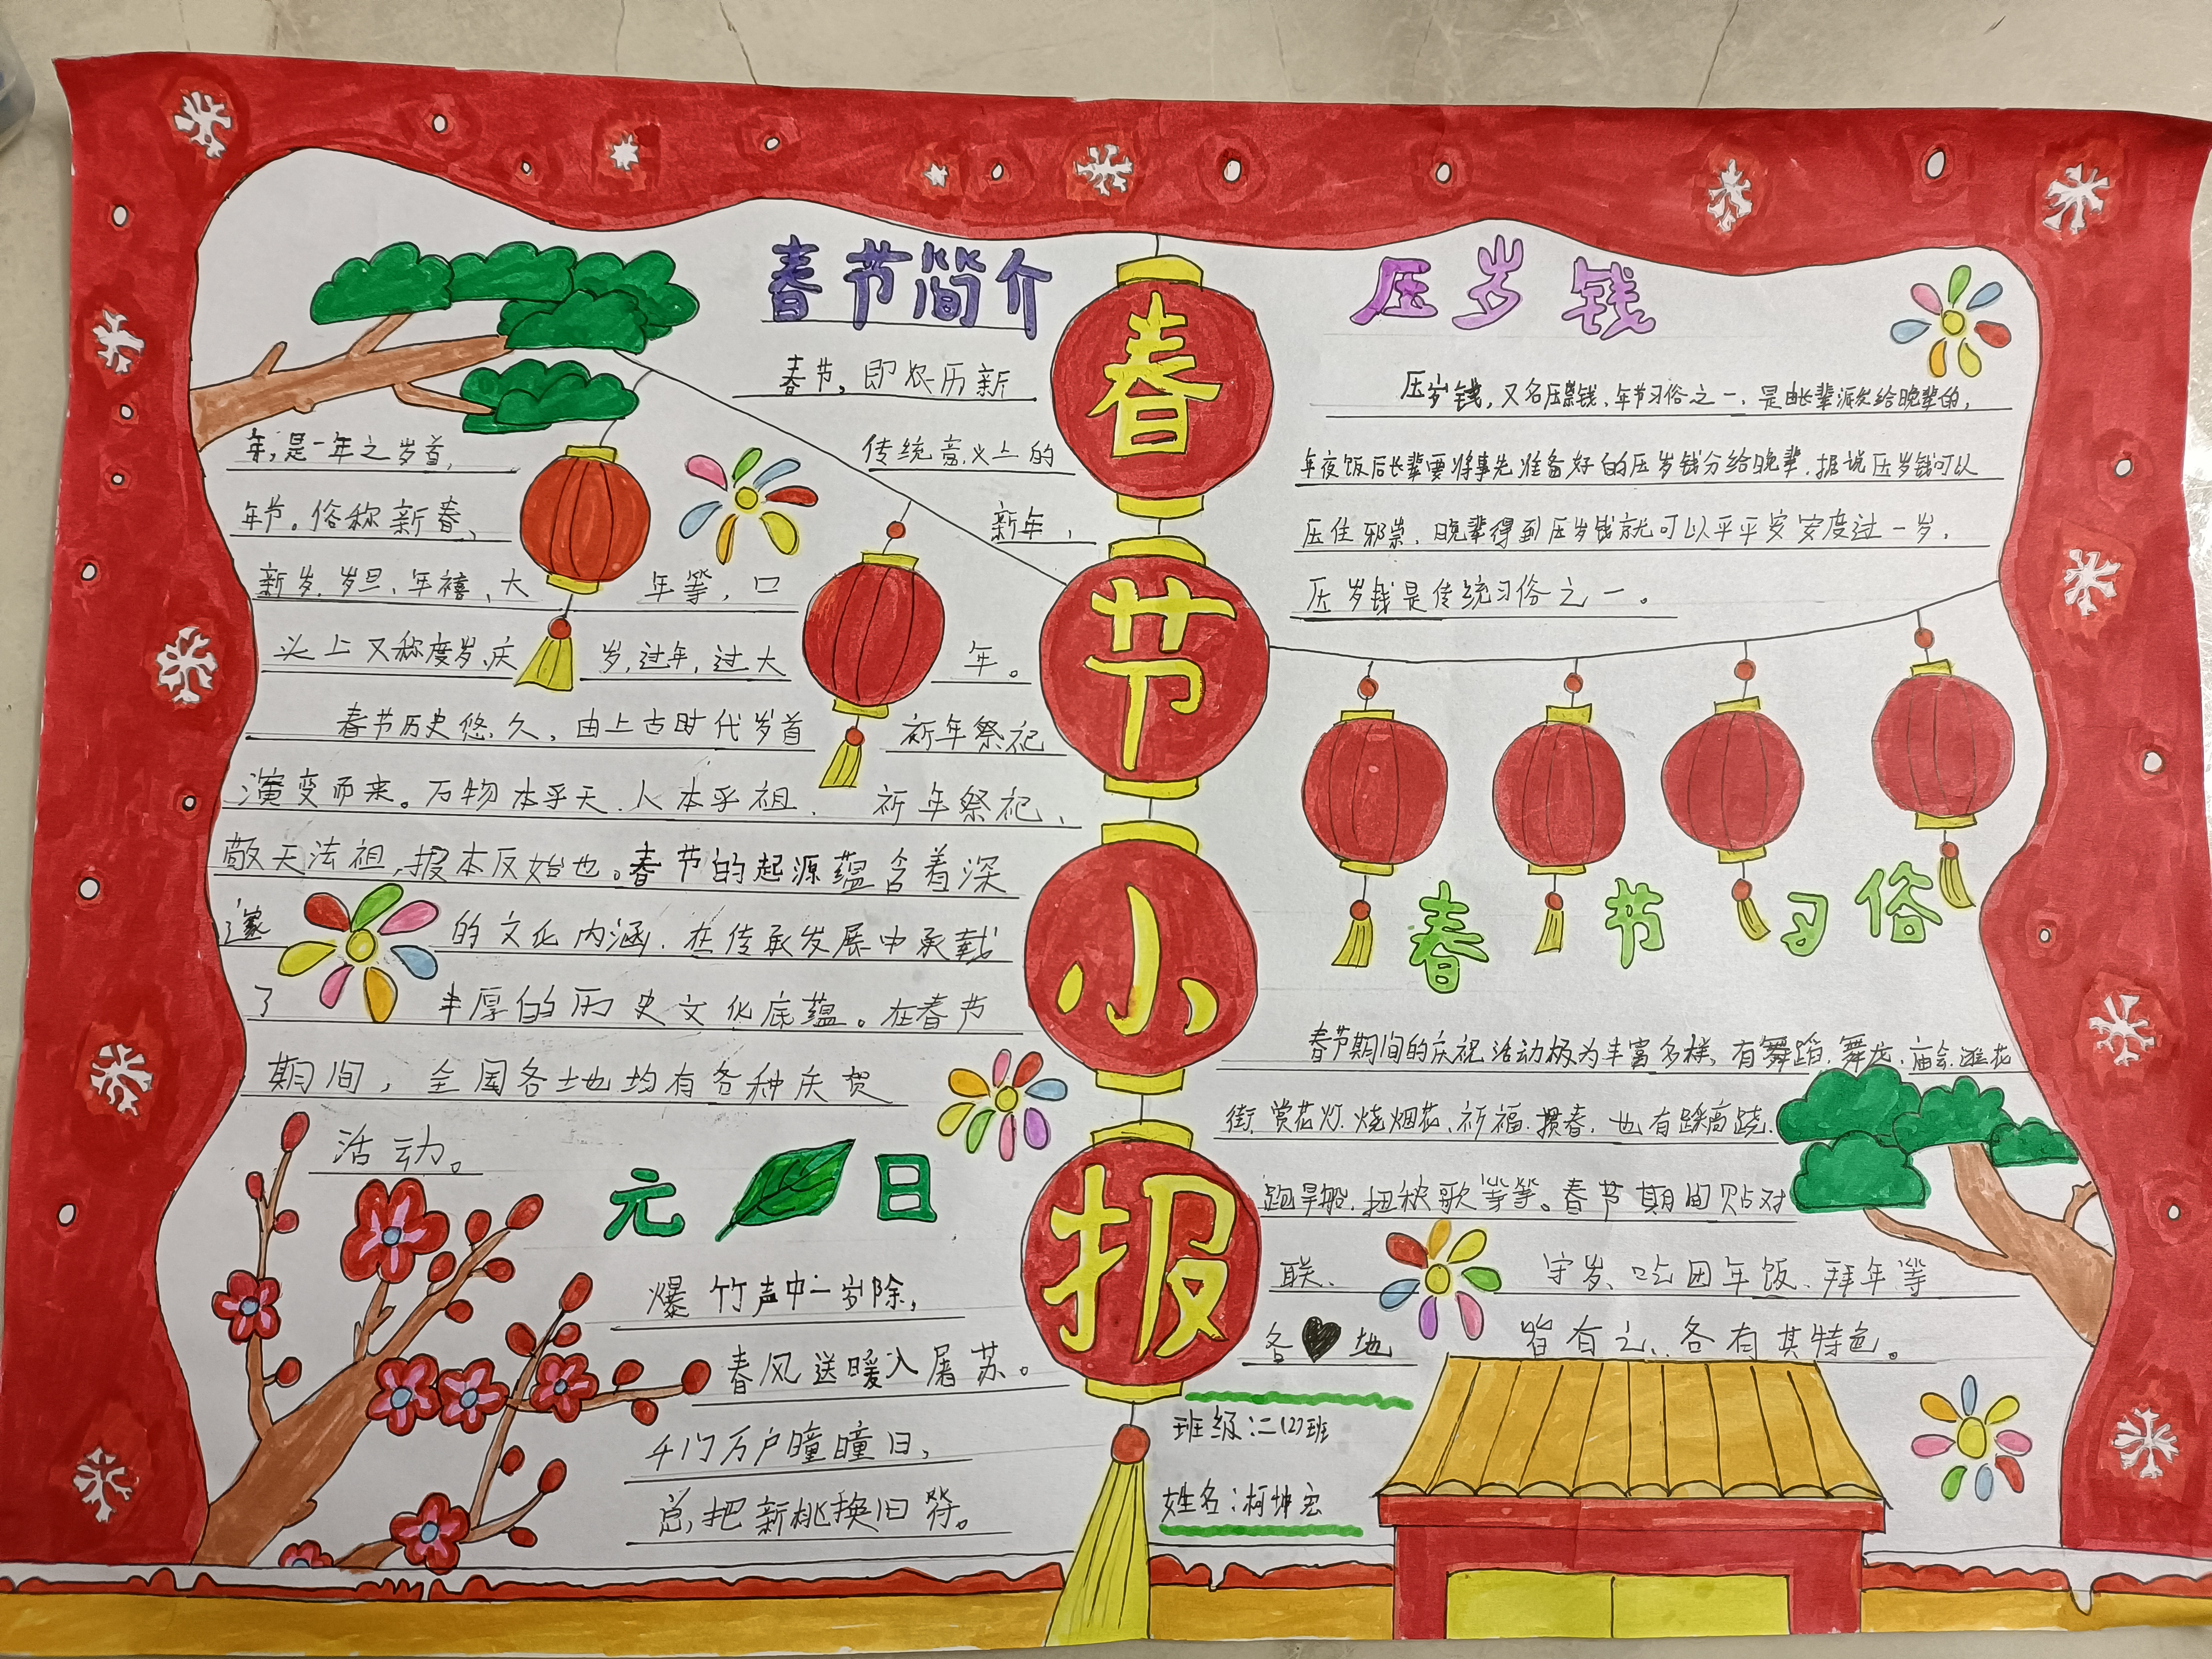 春节简介
春节,即农历新
年,是一年之岁首,传统意义上的
年节。俗称新春、新年、
新岁、岁旦、年禧、大年等,口
头上又称度岁、庆岁,过年,过大年。
春节历史悠久,由上古时代岁首祈年祭祀
演变而来。万物本乎天、人本乎祖、祈年祭祀、
敬天法祖,报本反始也。春节的起源蕴含着深
邃的文化内涵,在传承发展中承载
了丰厚的历史文化底蕴。在春节
期间,全国各地均有各种庆贺
活动。
元日
爆竹声中一岁除,
春风送暖入屠苏。
千门万户曈曈日,
总把新桃换旧符。
春节小报
压岁钱
压岁钱,又名压祟钱、年节习俗之一、是由长辈派发给晚辈的,
年夜饭后长辈要将事先准备好的压岁钱分给晚辈,据说压岁钱可以
压住邪祟、晚辈得到压岁钱就可以平平安安度过一岁,
压岁钱是传统习俗之一。
春节习俗
春节期间的庆祝活动极为丰富多样、有舞蹈、舞龙、庙会、逛花
街、赏花灯、烧烟花、祈福、掼春、也有踩高跷、
跑旱船、扭秧歌等等。春节期间贴对
联、守岁、吃团年饭、拜年等
各地皆有之、各有其特色。
班级:二(2)班
姓名:柯坤宏